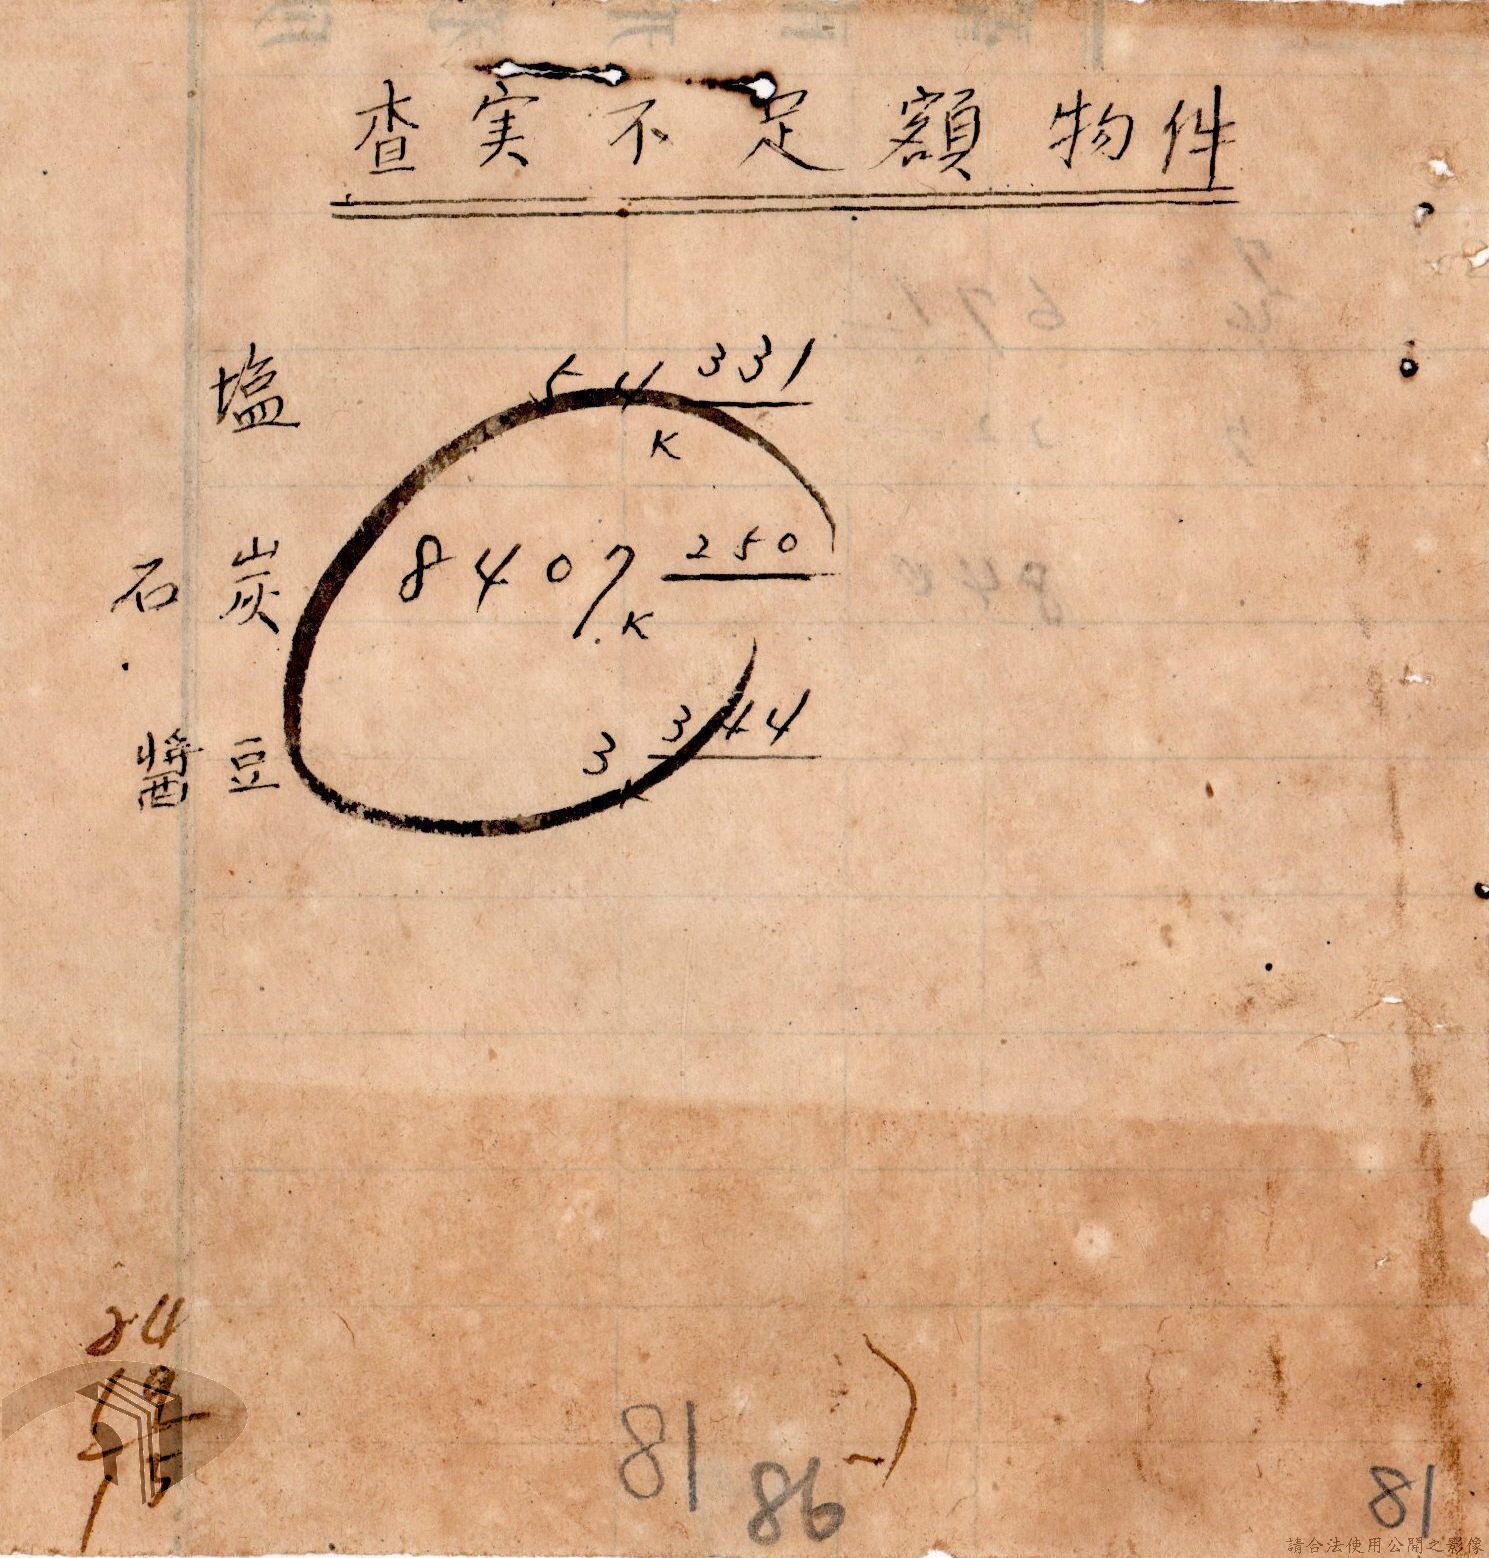 查実不足額物件
塩 54 331 K
石炭 8407 250 K
醬豆 3 344 K
24
15
18
98
18
請合法使用公開之影像